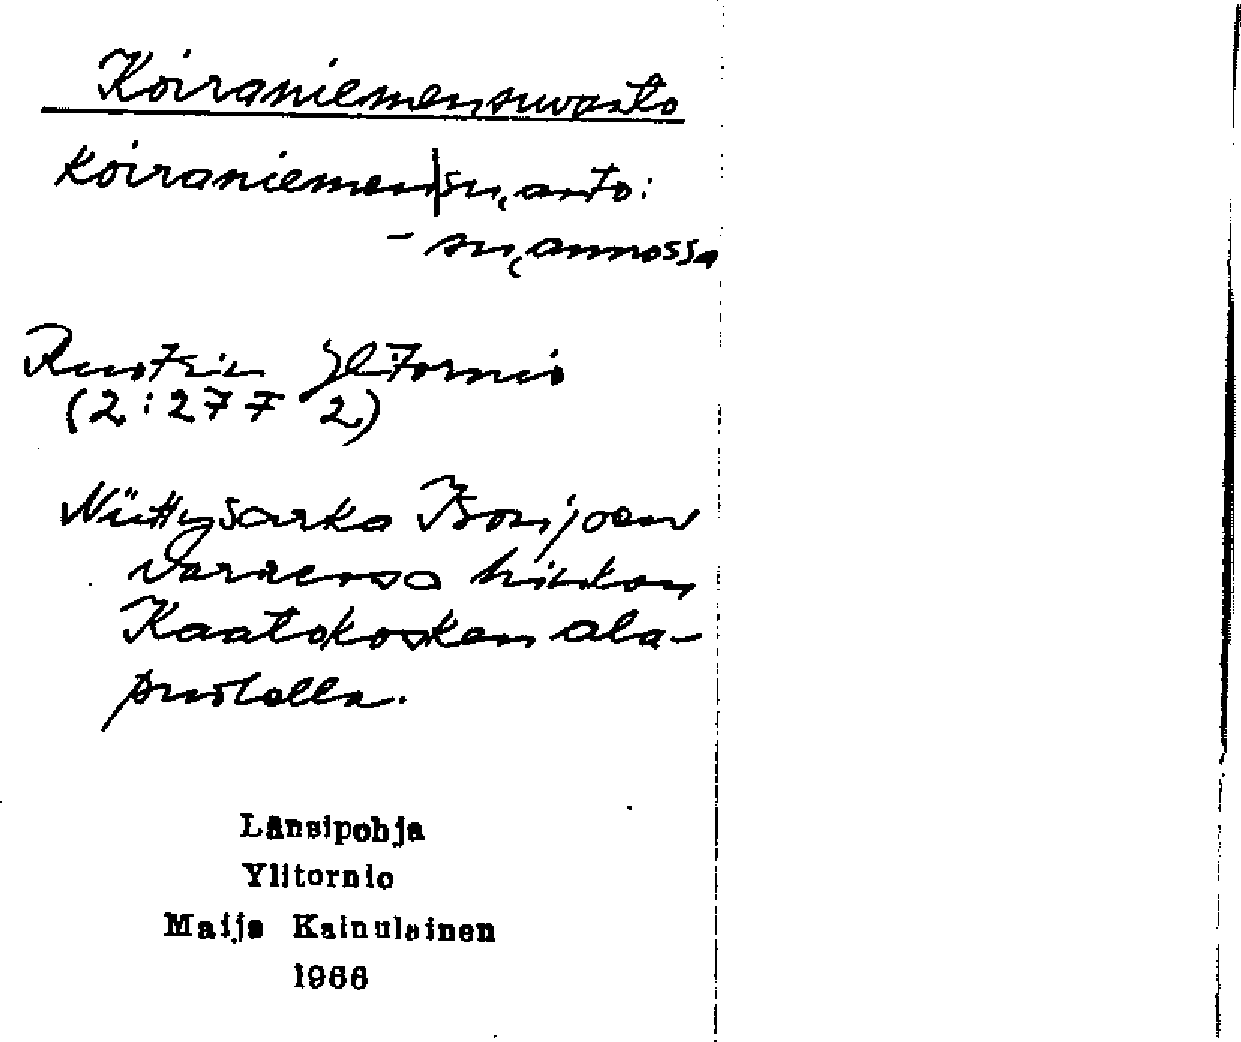 Koiraniemensuvanto
Koiraniemen|su̯anto:
– su̯annossa
Ruotsin Ylitornio
(2:277 2)
Niittysarka Isonjoen
varressa hiukan
Kaatokosken ala-
puolella.
Länsipohja
Ylitornio
Maija Kainulainen
1966